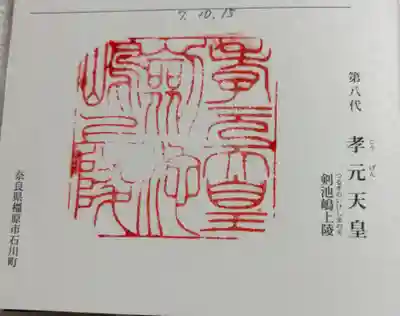 7.10.15
第八代
孝元天皇
こうげん
剣池嶋上陵
つるぎのいけしまのえ
孝元天皇
剣池
嶋上陵
奈良県橿原市石川町